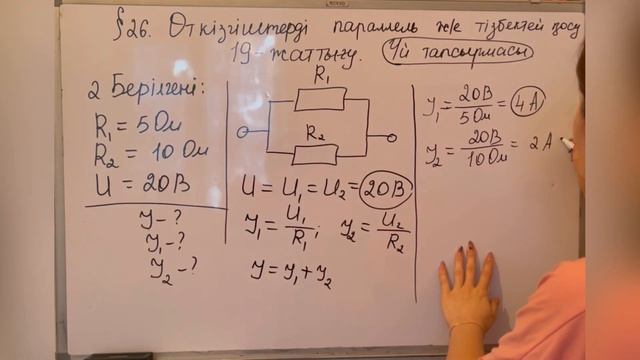 §26. Өткізгіштерді параллель ж/е тізбектей қосу
19-жаттығу. Үй тапсырмасы
2 Берілгені:
R₁ = 5 Ом
R₂ = 10 Ом
U = 20 В
Y - ?
Y₁ - ?
Y₂ - ?
R₁
R₂
U = U₁ = U₂ = 20 В
Y₁ = U₁/R₁; Y₂ = U₂/R₂
Y = Y₁ + Y₂
Y₁ = 20 В/5 Ом = 4 А
Y₂ = 20 В/10 Ом = 2 А